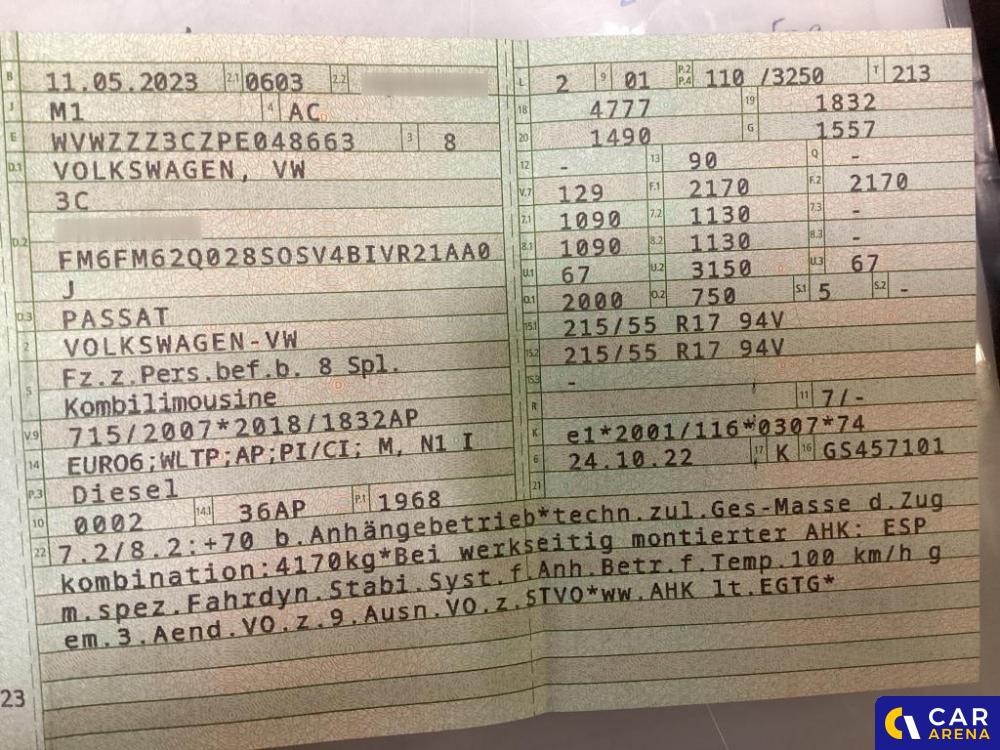 B 11.05.2023 2.1 0603 2.2
J M1 4 AC
E WVWZZZ3CZPE048663 3 8
D.1 VOLKSWAGEN, VW
3C
D.2
FM6FM62Q028SOSV4BIVR21AA0
J
D.3 PASSAT
2 VOLKSWAGEN-VW
5 Fz.z.Pers.bef.b. 8 Spl.
Kombilimousine
V.9 715/2007*2018/1832AP
14 EURO6;WLTP;AP;PI/CI; M, N1 I
P.3 Diesel
10 0002 14.1 36AP P.1 1968
L 2 9 01 P.2 P.4 110 /3250 T 213
18 4777 19 1832
20 1490 G 1557
12 - 13 90 Q -
V.7 129 F.1 2170 F.2 2170
7.1 1090 7.2 1130 7.3 -
8.1 1090 8.2 1130 8.3 -
U.1 67 U.2 3150 U.3 67
O.1 2000 O.2 750 S.1 5 S.2 -
15.1 215/55 R17 94V
15.2 215/55 R17 94V
15.3 -
R 11 7/-
K e1*2001/116*0307*74
6 24.10.22 17 K 16 GS457101
21
22 7.2/8.2:+70 b.Anhängebetrieb*techn.zul.Ges-Masse d.Zug
kombination:4170kg*Bei werkseitig montierter AHK: ESP
m.spez.Fahrdyn.Stabi.Syst.f.Anh.Betr.f.Temp.100 km/h g
em.3.Aend.VO.z.9.Ausn.VO.z.STVO*ww.AHK lt.EGTG*
23
CAR
ARENA